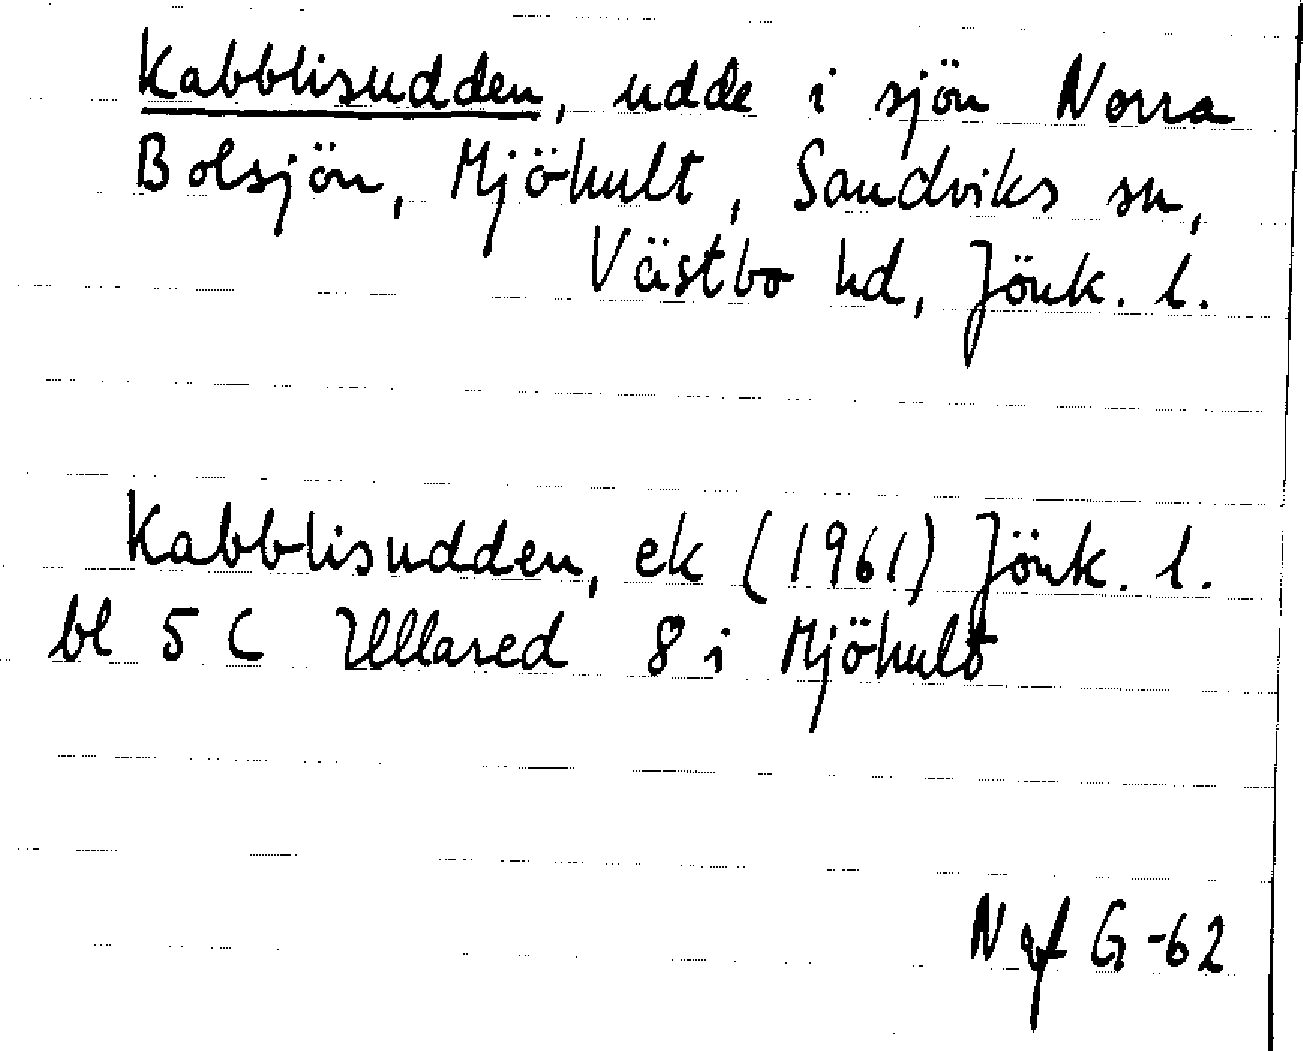 Kabblisudden, udde i sjön Norra
Bolsjön, Mjöhult, Sandviks sn,
Västbo hd, Jönk. l.
Kabblisudden, ek (1961) Jönk. l.
bl 5 C Ullared 8 i Mjöhult
N G -62